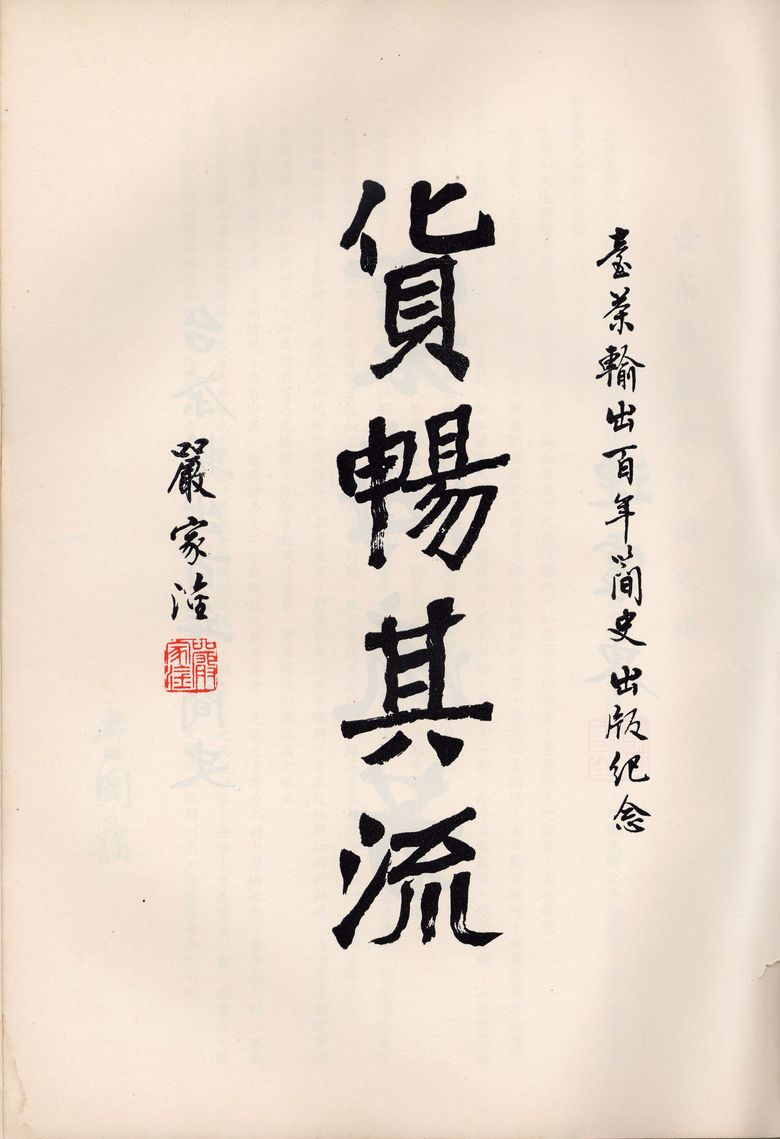 臺茶輸出百年簡史出版紀念
貨暢其流
嚴家淦
嚴家淦